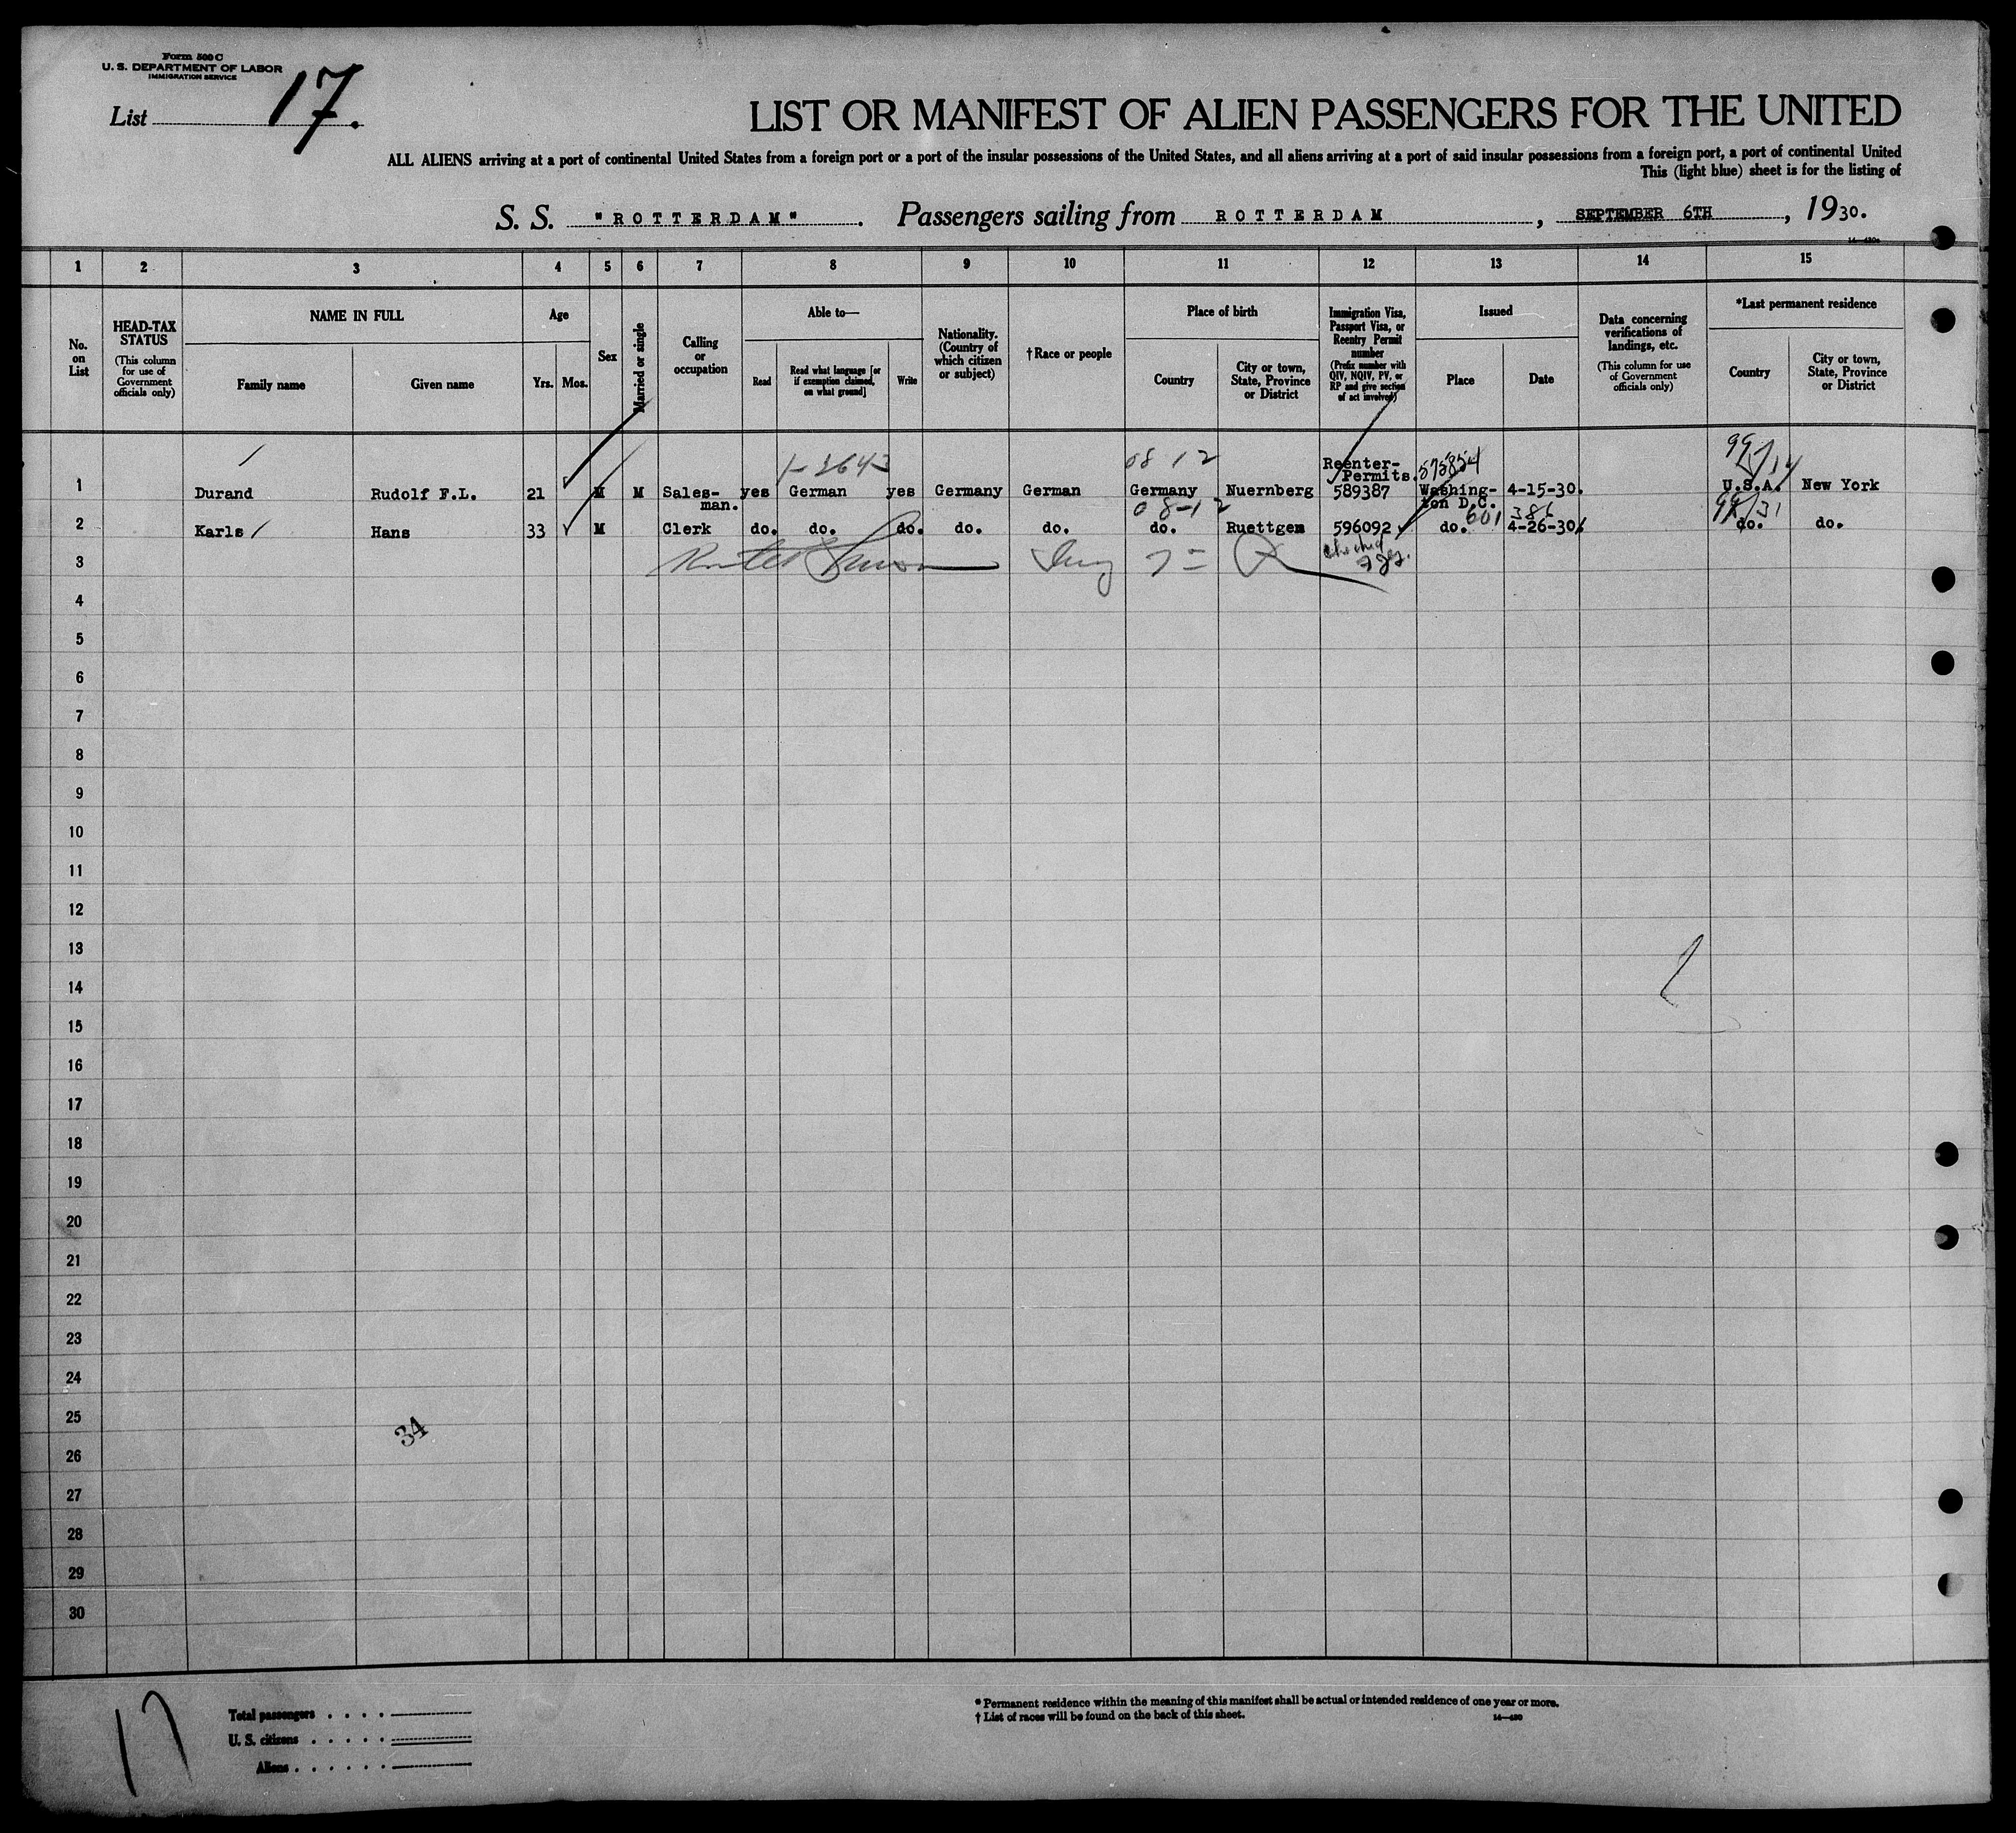 Form 500 C
U. S. DEPARTMENT OF LABOR
IMMIGRATION SERVICE
List 17.
LIST OR MANIFEST OF ALIEN PASSENGERS FOR THE UNITED
ALL ALIENS arriving at a port of continental United States from a foreign port or a port of the insular possessions of the United States, and all aliens arriving at a port of said insular possessions from a foreign port, a port of continental United
This (light blue) sheet is for the listing of
S. S. "ROTTERDAM". Passengers sailing from ROTTERDAM, SEPTEMBER 6TH, 1930.
1 2 3 4 5 6 7 8 9 10 11 12 13 14 15
No. on List
HEAD-TAX STATUS
(This column for use of Government officials only)
NAME IN FULL
Family name Given name
Age
Yrs. Mos.
Sex
Married or single
Calling or occupation
Able to—
Read
Read what language [or if exemption claimed, on what ground]
Write
Nationality. (Country of which citizen or subject)
†Race or people
Place of birth
Country
City or town, State, Province or District
Immigration Visa, Passport Visa, or Reentry Permit number
(Prefix number with QIV, NQIV, PV, or RP and give section of act involved)
Issued
Place Date
Data concerning verifications of landings, etc.
(This column for use of Government officials only)
*Last permanent residence
Country
City or town, State, Province or District
08 12
Reenter-
Permits. 575854
1 Durand Rudolf F.L. 21 M M Sales- yes German yes Germany German Germany Nuernberg 589387 Washing- 4-15-30. U.S.A. New York
man. 08-12 ton D.C.
601 386
2 Karls Hans 33 M Clerk do. do. do. do. do. do. Ruettgen 596092 do. 4-26-30. do. do.
3
4
5
6
7
8
9
10
11
12
13
14
15
16
17
18
19
20
21
22
23
24
25
34
26
27
28
29
30
17
Total passengers . . . .
U. S. citizens . . . . .
Aliens . . . . . .
* Permanent residence within the meaning of this manifest shall be actual or intended residence of one year or more.
† List of races will be found on the back of this sheet.